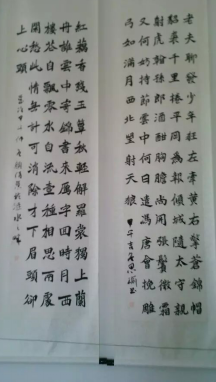 老夫聊發少年狂左牽黃右擎錦帽
貂裘千里捲平岡為報傾城隨太守親
射虎看孫郎酒酣胸膽尚開張鬢微霜
又何妨持節雲中何日遣馮唐會挽雕
弓如滿月西北望射天狼
甲午
紅藕香殘玉簟秋輕解羅裳獨上蘭
舟誰雲中寄錦書來雁字回時月西
樓花自飄零水自流一種相思兩處
閒愁此情無計可消除才下眉頭卻
上心頭